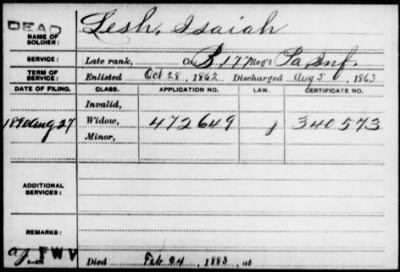 DEAD
NAME OF SOLDIER: Lesh, Isaiah
SERVICE: Late rank, Co. B, 177 Reg't Pa Inf.
TERM OF SERVICE: Enlisted Oct 28, 1862 Discharged Aug 5, 1863
DATE OF FILING. CLASS. APPLICATION NO. LAW. CERTIFICATE NO.
Invalid,
1890 Aug 27 Widow, 472649 340573
Minor,
ADDITIONAL SERVICES:
REMARKS:
FWV Died Feb 24, 1883, at